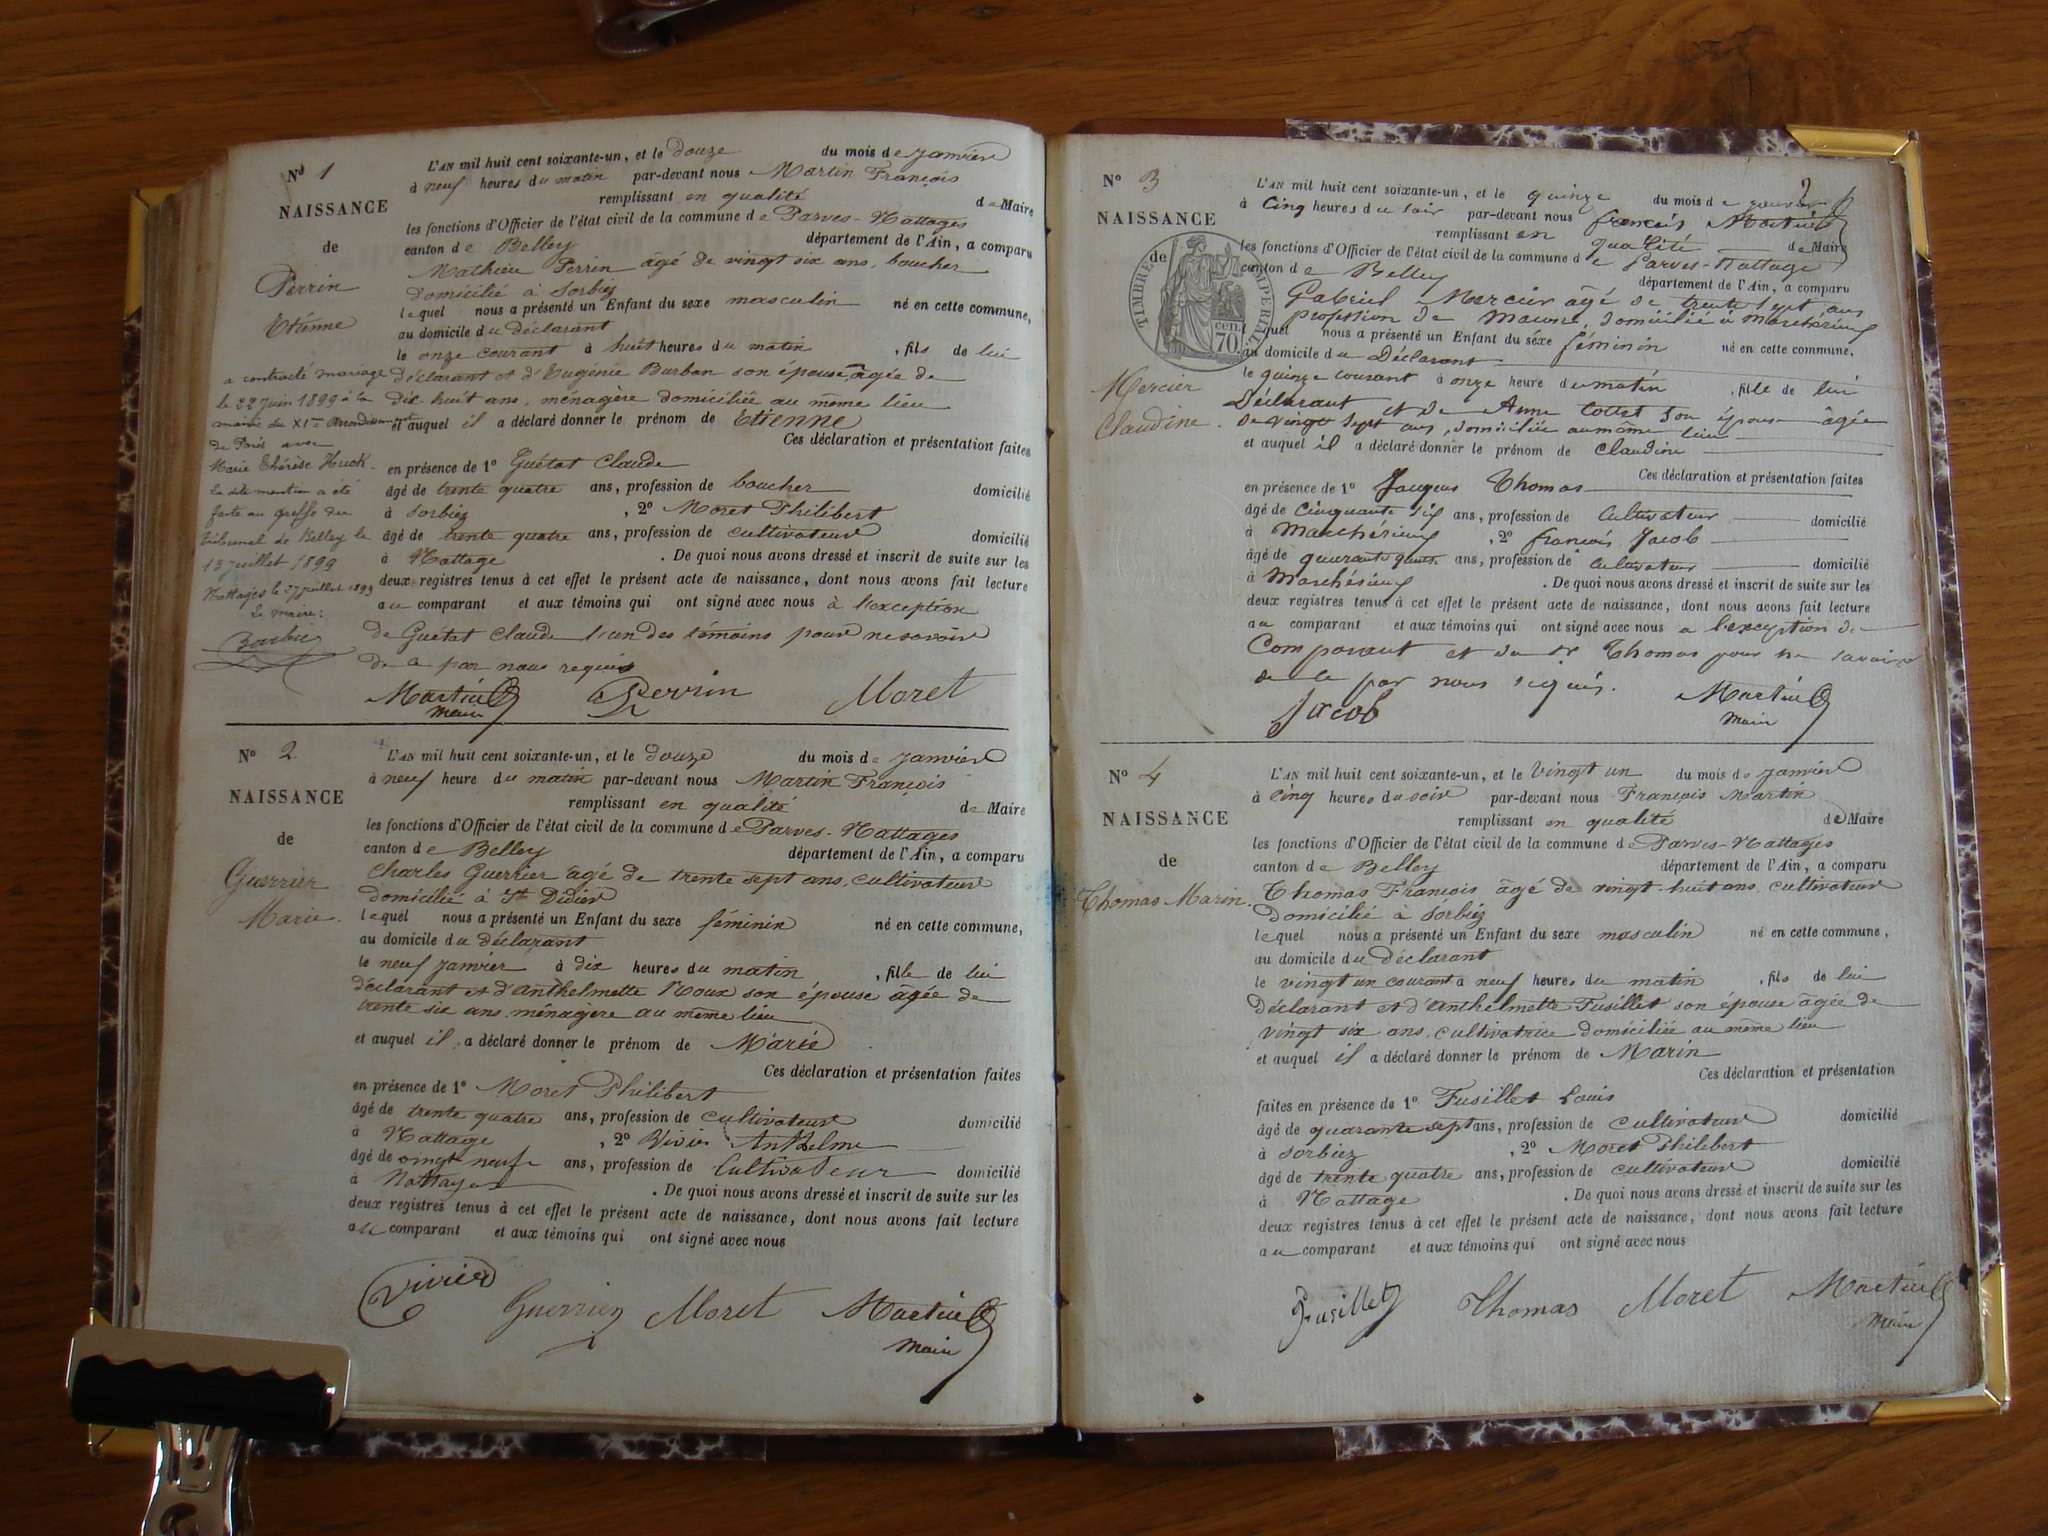 Nº 1
NAISSANCE
de
Perrin
Etienne
a contracté mariage
le 22 juin 1899 à la
mairie du XIme Arrondissement
de Paris avec
Marie Thérèse Huck.
La dite mention a été
faite au greffe du
tribunal de Belley le
13 juillet 1899
Nattages le 27 juillet 1899
Le maire:
Barbier
L'AN mil huit cent soixante-un, et le douze du mois de janvier
à neuf heures du matin par-devant nous Martin François
remplissant en qualité de Maire
les fonctions d'Officier de l'état civil de la commune de Parves-Nattages
canton de Belley département de l'Ain, a comparu
Mathieu Perrin âgé de vingt six ans, boucher
domicilié à Sorbiez
lequel nous a présenté un Enfant du sexe masculin né en cette commune,
au domicile du déclarant
le onze courant à huit heures du matin, fils de lui
déclarant et d'Eugénie Burban son épouse, âgée de
dix-huit ans, ménagère domiciliée au même lieu
et auquel il a déclaré donner le prénom de Etienne
Ces déclaration et présentation faites
en présence de 1º Guétat Claude
âgé de trente quatre ans, profession de boucher domicilié
à Sorbiez, 2º Moret Philibert
âgé de trente quatre ans, profession de cultivateur domicilié
à Nattage. De quoi nous avons dressé et inscrit de suite sur les
deux registres tenus à cet effet le présent acte de naissance, dont nous avons fait lecture
au comparant et aux témoins qui ont signé avec nous à l'exception
de Guétat Claude l'un des témoins pour ne savoir
de ce par nous requis
Martin Perrin Moret
Maire
Nº 2.
NAISSANCE
de
Guerrier
Marie.
L'AN mil huit cent soixante-un, et le douze du mois de janvier
à neuf heure du matin par-devant nous Martin François
remplissant en qualité de Maire
les fonctions d'Officier de l'état civil de la commune de Parves-Nattages
canton de Belley département de l'Ain, a comparu
Charles Guerrier âgé de trente sept ans, cultivateur
domicilié à St Didier
lequel nous a présenté un Enfant du sexe féminin né en cette commune,
au domicile du déclarant
le neuf janvier à dix heures du matin, fille de lui
déclarant et d'Anthelmette Roux son épouse âgée de
trente six ans ménagère au même lieu
et auquel il a déclaré donner le prénom de Marie
Ces déclaration et présentation faites
en présence de 1º Moret Philibert
âgé de trente quatre ans, profession de cultivateur domicilié
à Nattage, 2º Vivier Anthelme
âgé de vingt neuf ans, profession de Cultivateur domicilié
à Nattages. De quoi nous avons dressé et inscrit de suite sur les
deux registres tenus à cet effet le présent acte de naissance, dont nous avons fait lecture
au comparant et aux témoins qui ont signé avec nous
Vivier Guerrier Moret Martin
Maire
2
Nº 3
NAISSANCE
de
TIMBRE IMPÉRIAL
70
Mercier
Claudine.
L'AN mil huit cent soixante-un, et le quinze du mois de janvier
à cinq heures du soir par-devant nous françois Martin
remplissant en qualité de Maire
les fonctions d'Officier de l'état civil de la commune de Parves-Nattage
canton de Belley département de l'Ain, a comparu
Gabriel Mercier âgé de trente sept ans
profession de Macon, domicilié à Marchérieu
lequel nous a présenté un Enfant du sexe féminin né en cette commune,
au domicile du Déclarant
le quinze courant à onze heure du matin, fille de lui
Déclarant et de Anne Collet son épouse âgée
de vingt sept ans, domiciliée au même lieu
et auquel il a déclaré donner le prénom de Claudine
Ces déclaration et présentation faites
en présence de 1º Thomas
âgé de Cinquante six ans, profession de Cultivateur domicilié
à Marchérieu, 2º françois Jacob
âgé de quarante quatre ans, profession de Cultivateur domicilié
à Marchérieu. De quoi nous avons dressé et inscrit de suite sur les
deux registres tenus à cet effet le présent acte de naissance, dont nous avons fait lecture
au comparant et aux témoins qui ont signé avec nous a l'exception du
Comparant et du Sr Thomas pour ne savoir
de ce par nous requis.
Jacob Martin
Maire
Nº 4
NAISSANCE
de
Thomas Marin.
L'AN mil huit cent soixante-un, et le vingt un du mois de janvier
à cinq heures du soir par-devant nous François Martin
remplissant en qualité de Maire
les fonctions d'Officier de l'état civil de la commune de Parves-Nattages
canton de Belley département de l'Ain, a comparu
Thomas François âgé de vingt-huit ans, cultivateur
domicilié à Sorbiez
lequel nous a présenté un Enfant du sexe masculin né en cette commune,
au domicile du déclarant
le vingt un courant à neuf heures du matin, fils de lui
déclarant et d'Anthelmette Fusillet son épouse âgée de
vingt six ans, cultivatrice domiciliée au même lieu
et auquel il a déclaré donner le prénom de Marin
Ces déclaration et présentation
faites en présence de 1º Fusillet Louis
âgé de quarante sept ans, profession de cultivateur domicilié
à Sorbiez, 2º Moret Philibert
âgé de trente quatre ans, profession de cultivateur domicilié
à Nattage. De quoi nous avons dressé et inscrit de suite sur les
deux registres tenus à cet effet le présent acte de naissance, dont nous avons fait lecture
au comparant et aux témoins qui ont signé avec nous
Fusillet Thomas Moret Martin
Maire